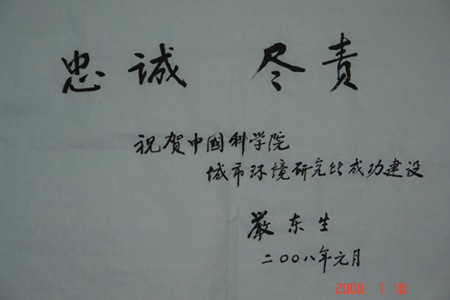 忠诚 尽责
祝贺中国科学院
城市环境研究所成功建设
严东生
二〇〇八年元月
2008 1 10